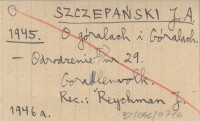 SZCZEPAŃSKI J.A.
1945. O góralach i Goralach.
- Odrodzenie nr 29.
Goralenvolk.
Rec.: Reychman J.
1946a.